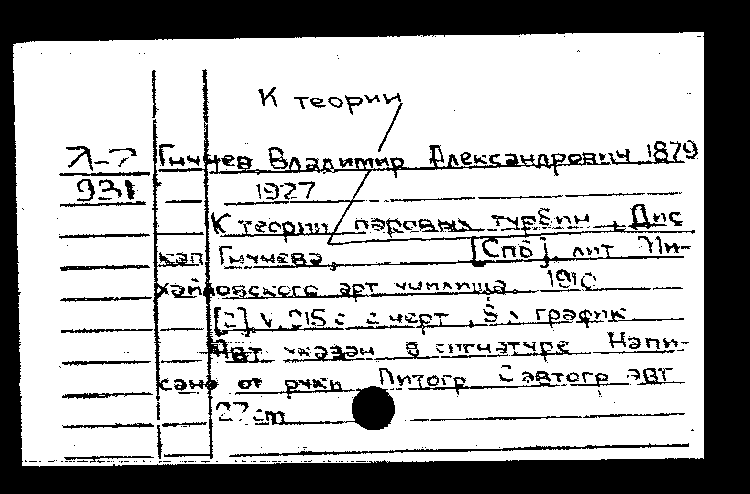 К теории
Л-7 Гичуев Владимир Александрович 1879
931 1927
К теории паровых турбин, Дис
кап Гинчева, [Спб], лит Ми-
хайловского арт училища. 1910
V, 215 с. черт, 8 л график
Авт указан в сигнатуре Напи-
сано от руки Литогр С автогр авт
27 cm